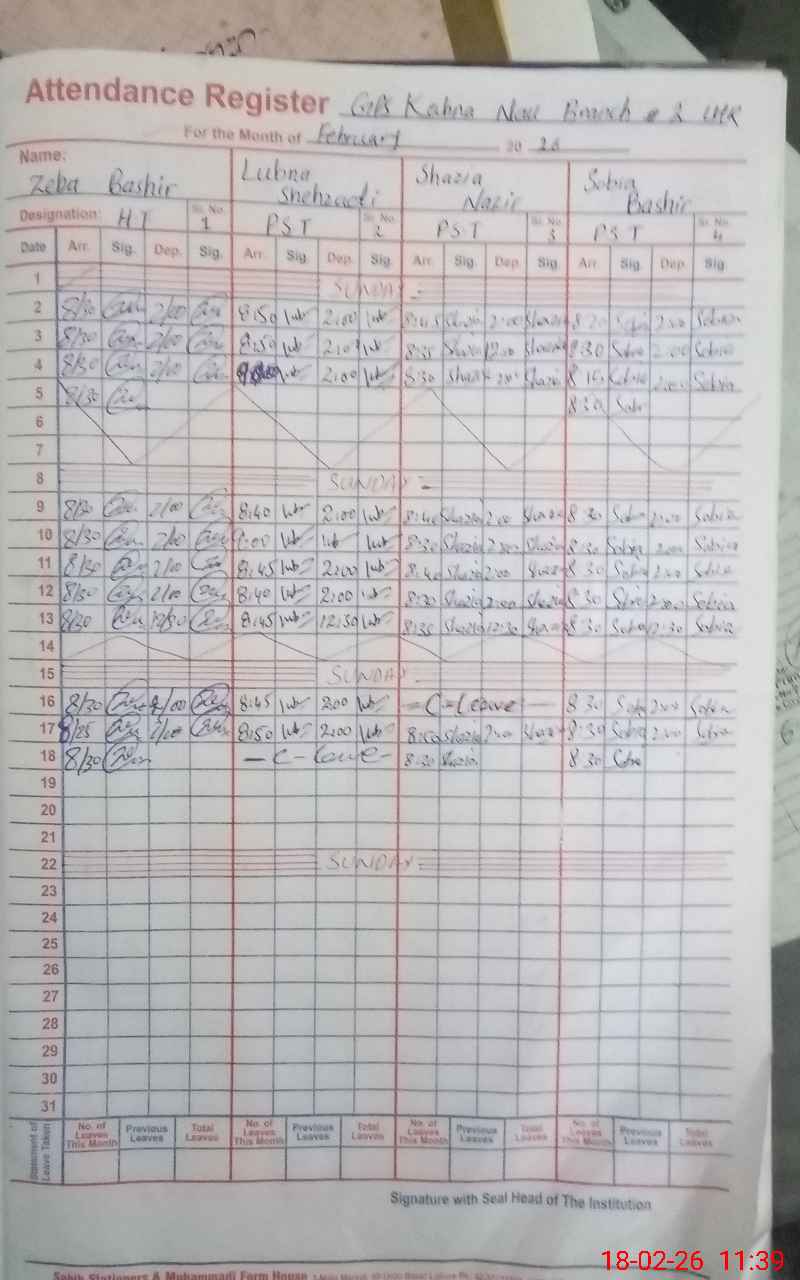 Attendance Register GPS Kahna Nau Branch # 2 LHR
For the Month of February 20 26
Name: Zeba Bashir Lubna Shehzadi Shazia Nazir Sobia Bashir
Designation: HT Sr. No. 1 PST Sr. No. 2 PST Sr. No. 3 PST Sr. No. 4
Date Arr. Sig. Dep. Sig. Arr. Sig. Dep. Sig. Arr. Sig. Dep. Sig. Arr. Sig. Dep. Sig
1 SUNDAY
2 8/30 2/00 8:50 2:00 8:45 Shazia 2:00 Shazia Sobia 2:00 Sobia
3 8/30 2/00 8:50 Shazia Shazia 8:30 Sobia 2:00 Sobia
4 8/30 2/00 2:00 8:30 Shazia Shazia Sobia 2:00 Sobia
5 8/30 8:30 Sobia
6
7
8 SUNDAY
9 8/30 2/00 8:40 2:00 8:40 Shazia 2:00 Shazia 8 30 Sobia 2:00 Sobia
10 8/30 2/00 8:30 Shazia 2:00 Shazia 8:30 Sobia 2:00 Sobia
11 8/30 2/00 8:45 2:00 8:40 Shazia 2:00 Shazia 8 30 Sobia 2:00 Sobia
12 8/30 2/00 8:40 2:00 8:30 Shazia 2:00 Shazia 8 30 Sobia 2:00 Sobia
13 8/30 12/30 8:45 12:30 8:35 Shazia 12:30 Shazia 8 30 Sobia 12:30 Sobia
14
15 SUNDAY
16 8/30 2/00 8:45 2:00 - C - Leave - 8 30 Sobia 2:00 Sobia
17 8/25 2/00 8:50 2:00 Shazia 2:00 Shazia 8:30 Sobia 2:00 Sobia
18 8/30 - C - Leave - 8:30 Shazia 8 30 Sobia
19
20
21
22 SUNDAY
23
24
25
26
27
28
29
30
31
Statement of Leave Taken No. of Leaves This Month Previous Leaves Total Leaves No. of Leaves This Month Previous Leaves Total Leaves No. of Leaves This Month Previous Leaves Total Leaves No. of Leaves This Month Previous Leaves Total Leaves
Signature with Seal Head of The Institution
Sabih Stationers & Muhammadi Form House
18-02-26 11:39